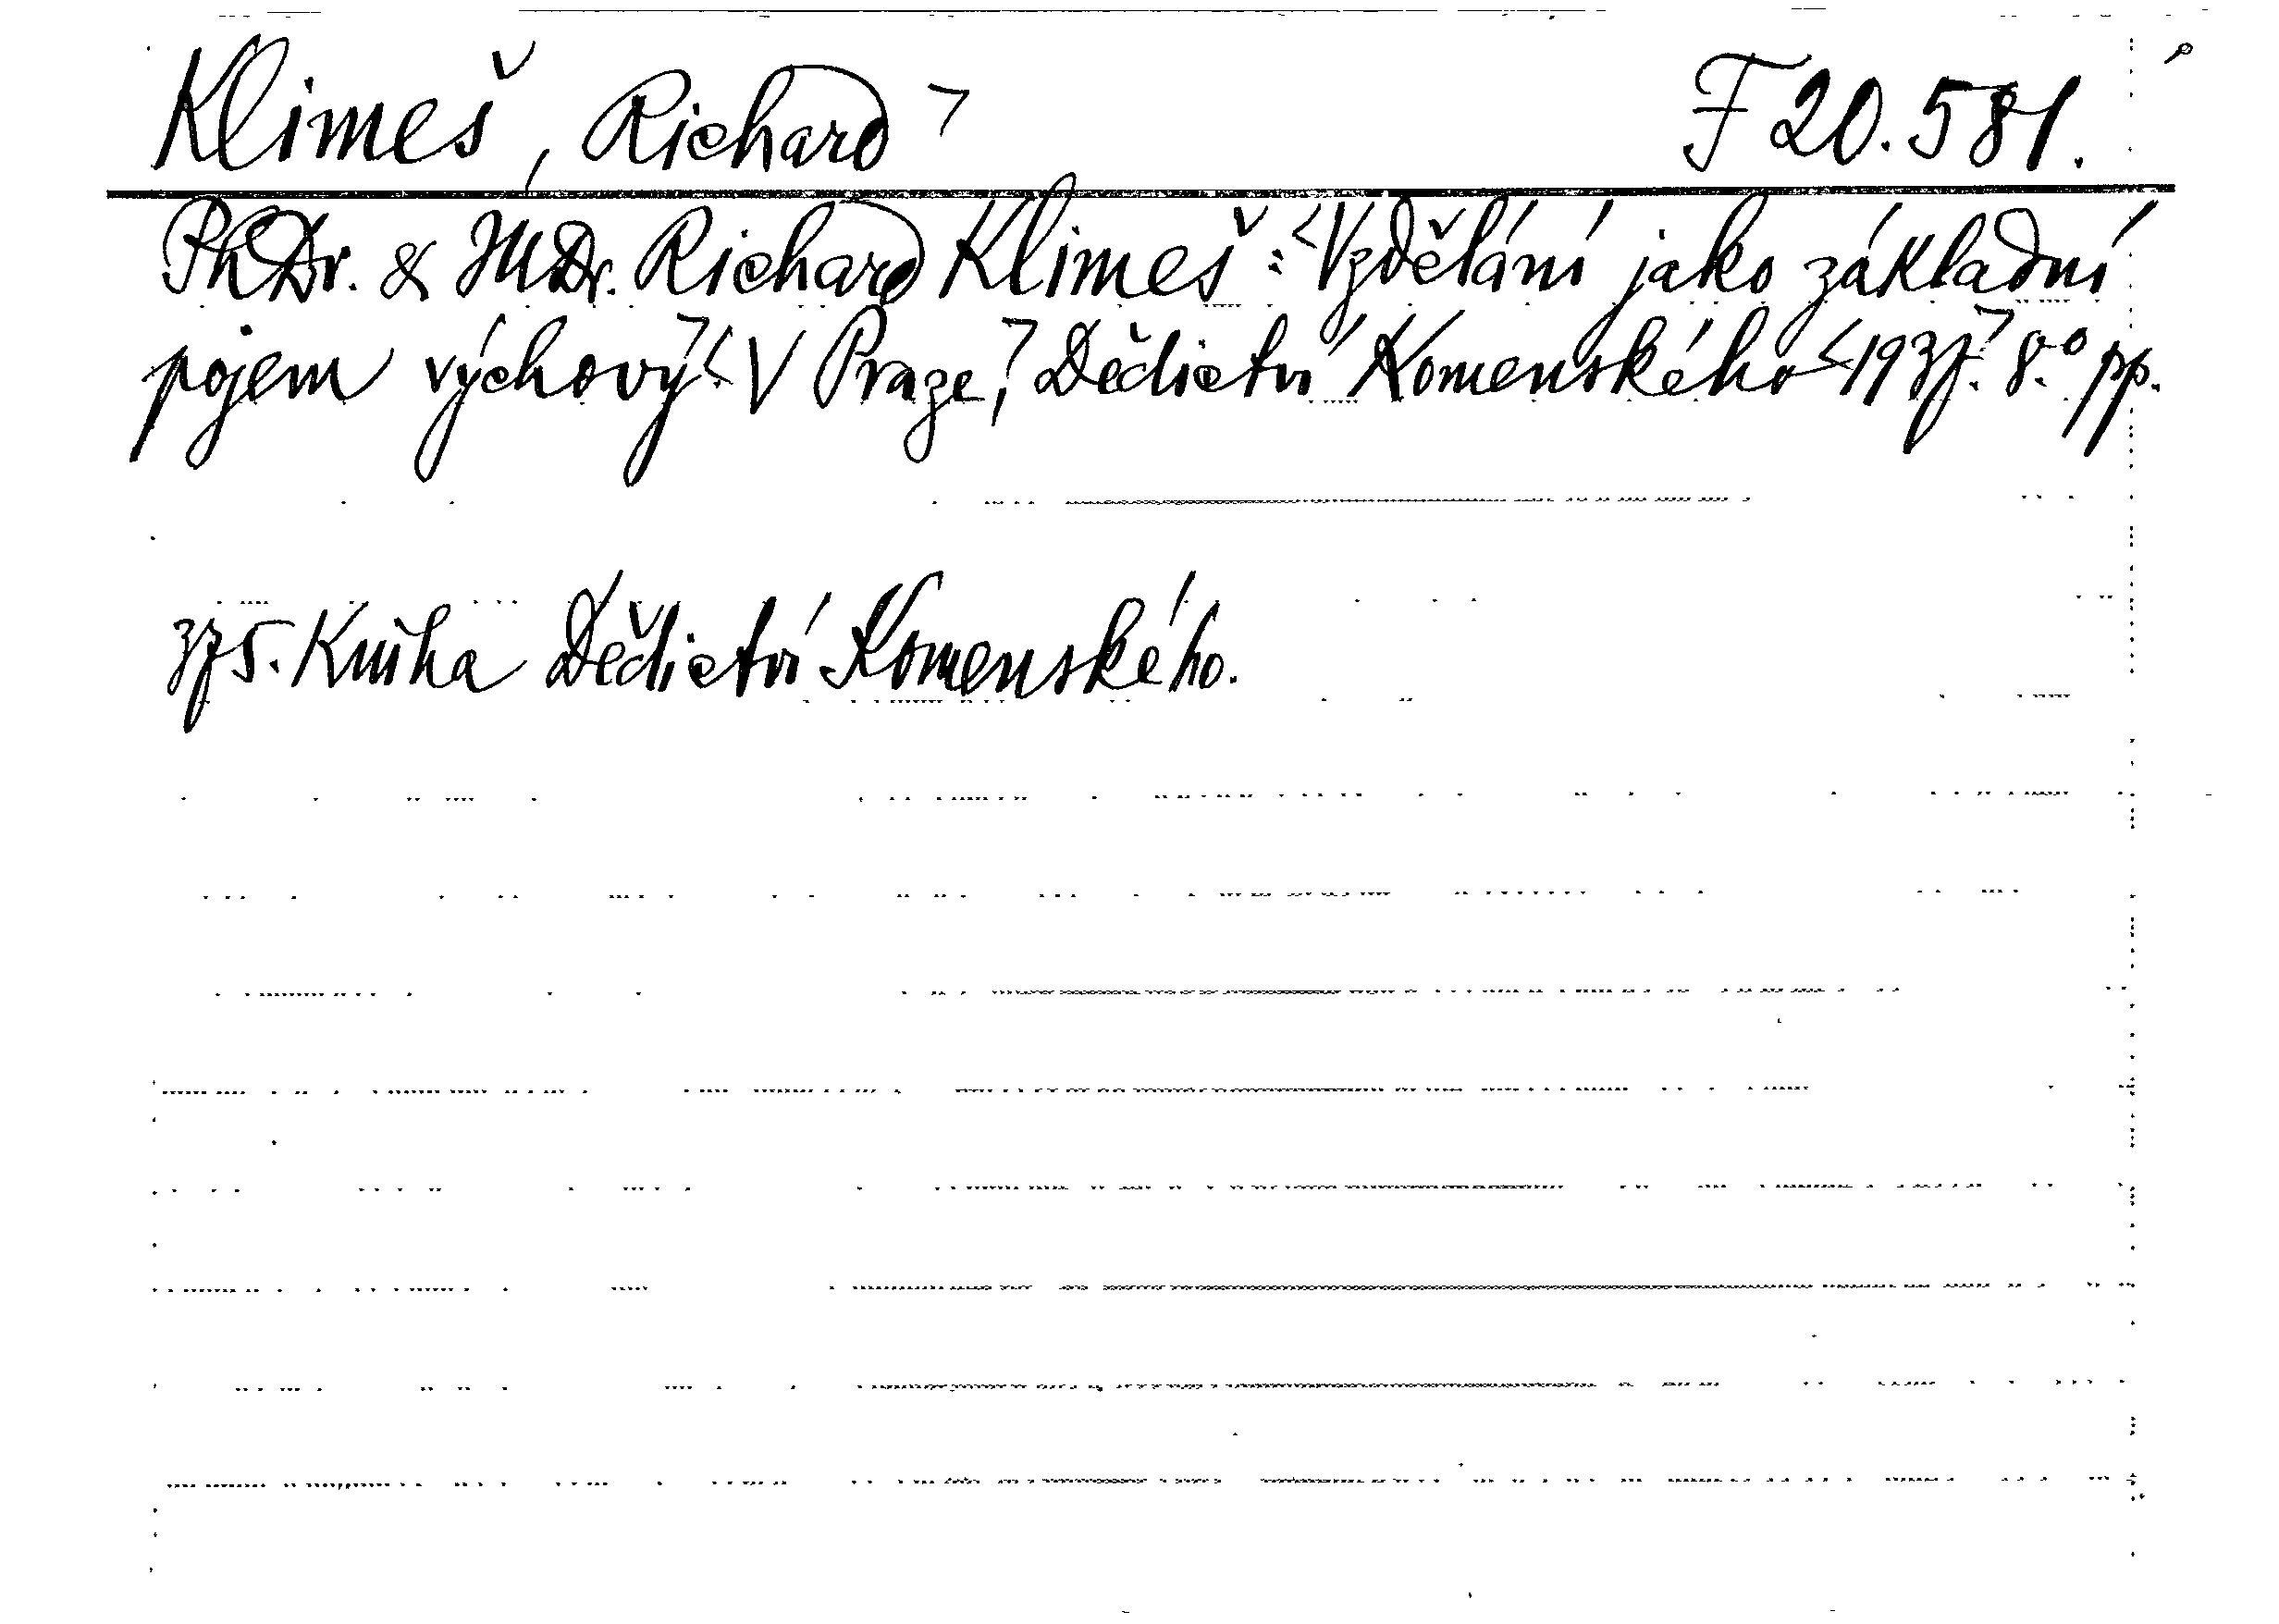 Klimeš, Richard F 20.581.
PhDr. & JUDr. Richard Klimeš: Vzdělání jako základní
pojem výchovy. V Praze, Dědictví Komenského 1937. 8.° pp.
375. Kniha Dědictví Komenského.